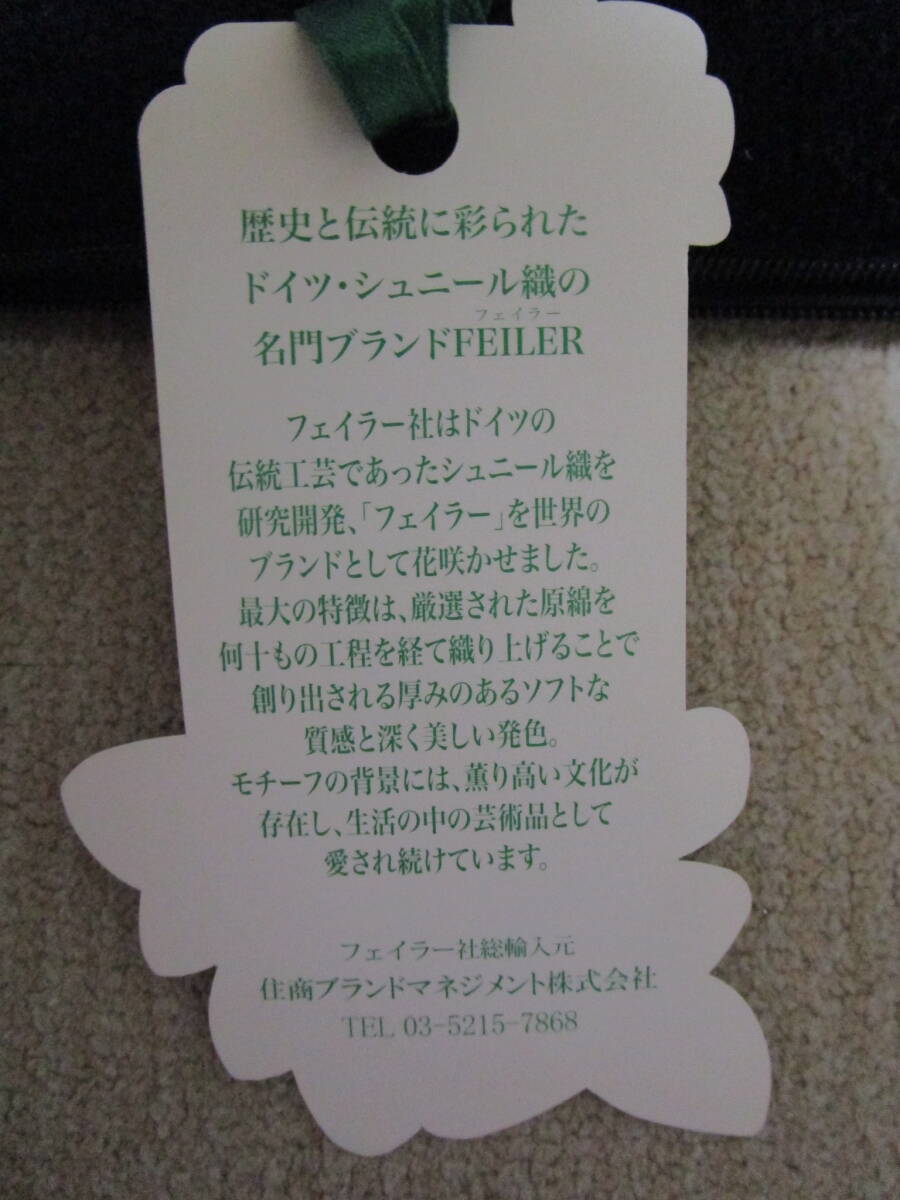 歴史と伝統に彩られた
ドイツ・シュニール織の
フェイラー
名門ブランドFEILER
フェイラー社はドイツの
伝統工芸であったシュニール織を
研究開発、「フェイラー」を世界の
ブランドとして花咲かせました。
最大の特徴は、厳選された原綿を
何十もの工程を経て織り上げることで
創り出される厚みのあるソフトな
質感と深く美しい発色。
モチーフの背景には、薫り高い文化が
存在し、生活の中の芸術品として
愛され続けています。
フェイラー社総輸入元
住商ブランドマネジメント株式会社
TEL 03-5215-7868